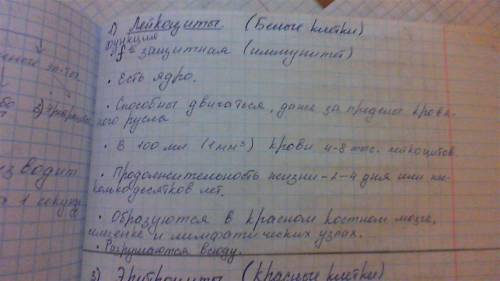 1) Лейкоциты (Белые клетки)
функция
• f = защитная (иммунитет)
• Есть ядро.
• Способны двигаться, даже за пределы кровя-
ного русла
• В 100 мл (1 мм³) крови 4-8 тыс. лейкоцитов
• Продолжительность жизни - 2-4 дня или нес-
колькодесятков лет.
• Образуются в красном костном мозге,
и лимфатических узлах.
• Разрушаются всюду.
3) Эритроциты (Красные клетки)
водит
1 секунду